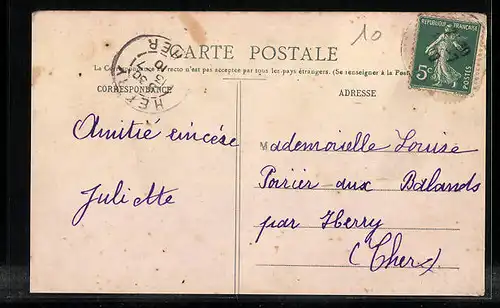 10
RÉPUBLIQUE FRANÇAISE
5c
POSTES
CARTE POSTALE
La Correspondance au recto n'est pas acceptée par tous les pays étrangers. (Se renseigner à la Poste)
CORRESPONDANCE
ADRESSE
Amitié sincère
Juliette
Mademoiselle Louise
Poirier aux Balands
par Herry
(Cher)